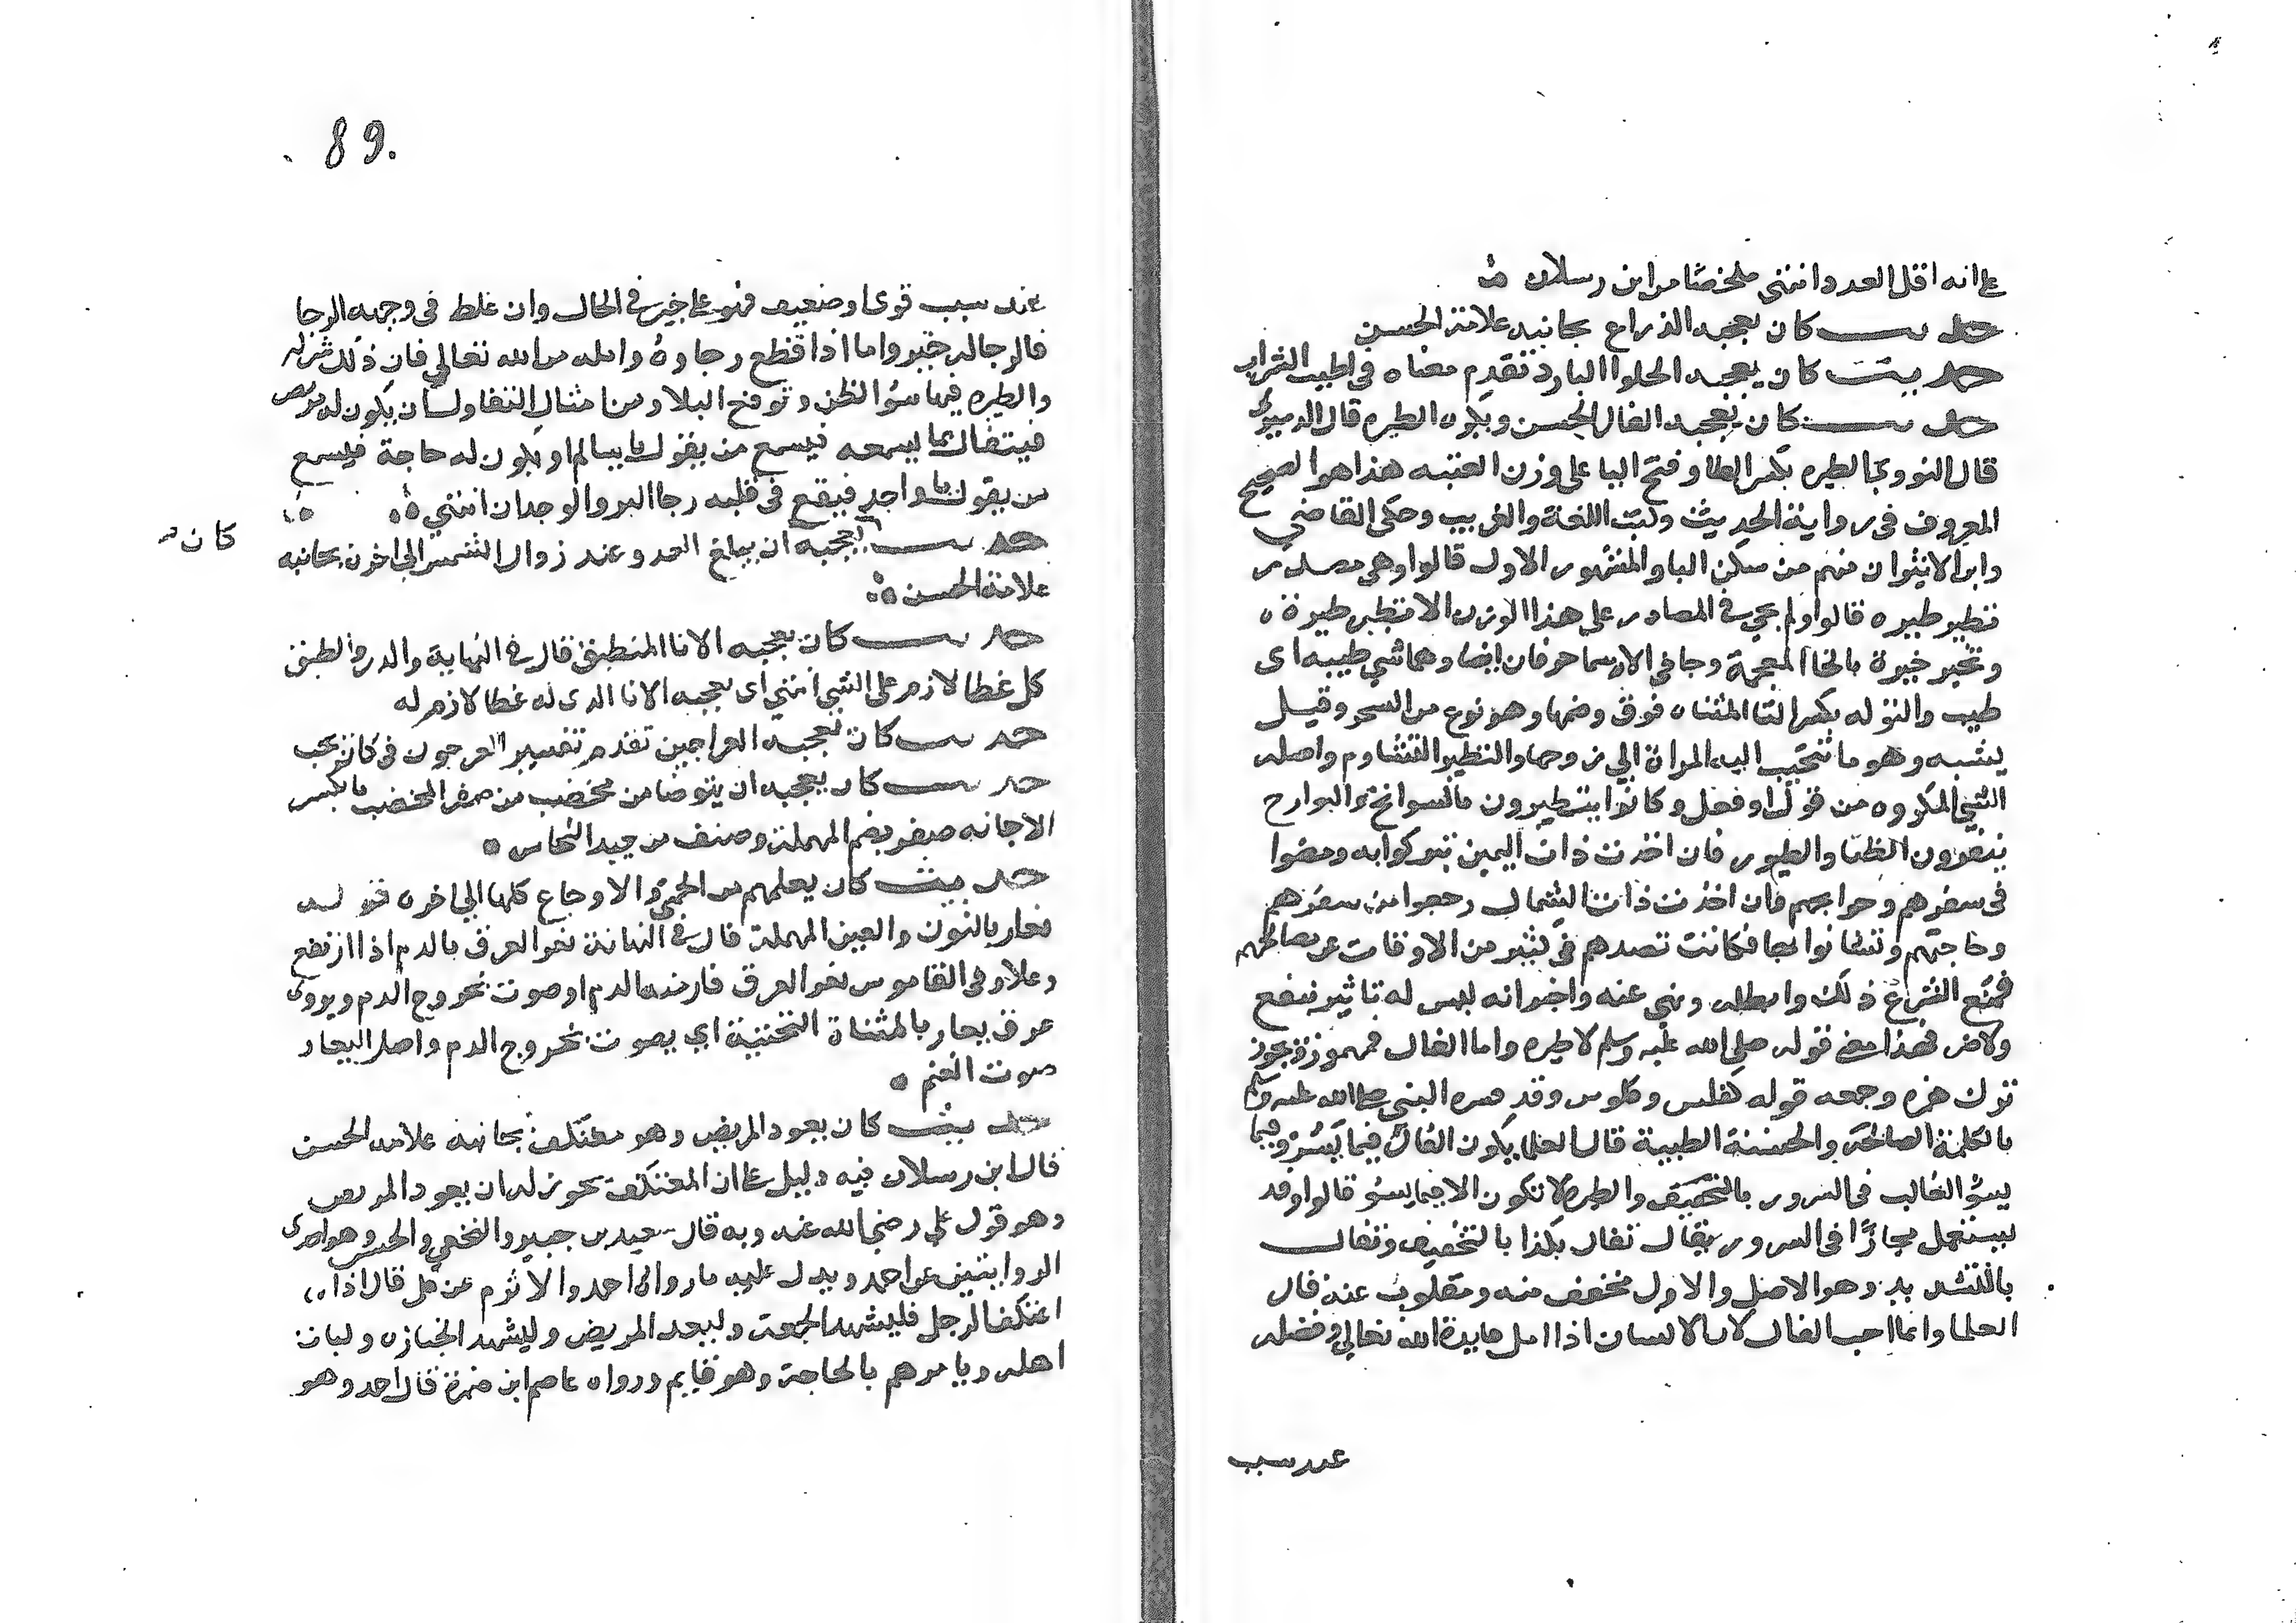 على انه اقل العدد انتهى ملخصا من ابن رسلان
حديث كان يعجبه الذراع بجانبه علامة الحسن
حديث كان يعجبه الحلوا البارد تقدم معناه في اطيب الشراب
حديث كان يعجبه الفال الحسن ويكره الطيره قال الدميرى
قال النووي الطيره بكسر الطا وفتح اليا على وزن العنبه هذا هو الصحيح
المعروف في رواية الحديث وكتب اللغة والغريب وحكى القاضي
وابن الاثير ان منهم من سكن اليا والمشهور الاول قالوا وهى مصدر
تطير طيره قالوا ولم يجي في المصادر على هذا الوزن الا تطير طيرة
وتخير خيرة بالخا المعجمة وجا في الاسما حرفان ايضا وهما شي طيبه اى
طيب والتوله بكسر التا المثناه فوق وضمها وهو نوع من السحر وقيل
يشبهه وهو ما تتحبب اليه المراة الي زوجها والتطير التشاوم واصله
الشي المكروه من قول او فعل وكانوا يتطيرون بالسوانح والبوارح
ينفرون الظبا والطيور فان اخذت ذات اليمين تبركوا به ومضوا
في سفرهم وحوايجهم فان اخذت ذات الشمال رجعوا من سفرهم
وحاجتهم وتشاموا بها فكانت تصدهم في كثير من الاوقات عن مصالحهم
فمنع الشرع ذلك وابطله ونهي عنه واخبر انه ليس له تاثير بنفع
ولا ضر فهذا معنى قوله صلى الله عليه وسلم لا طيره واما الفال فمهموزة يجوز
ترك همزه وجمعه قوله كفلس وفلوس وقد فسره النبي صلى الله عليه وسلم
بالكلمة الصالحة والحسنة الطيبة قال العلما يكون الفال فيما يسر وفيما
يسؤ الغالب في السرور والطيرة لا تكون الا فيما يسؤ قالوا وقد
يستعمل مجازًا في السرور يقال تفال بكذا بالتخفيف وتفال
بالتشديد وهو الاصل والاول مخفف منه ومقلوب عنه قال
العلما وانما احب الفال لان الانسان اذا امل فايدة الله تعالى وفضله
عند سبب
89
عند سبب قوى او ضعيف فهو على خير في الحال وان غلط في وجهه الرجا
فالرجا له خير واما اذا قطع رجاوه وامله من الله تعالي فان ذلك شر له
والطيره فيها سؤ الظن وتوقع البلا ومن امثال التفاول ان يكون له مريض
فيتفال بما يسمعه فيسمع من يقول يا سالم او يكون له حاجة فيسمع
من يقول يا واجد فيقع في قلبه رجا البر والوجدان انتهي
حديث يعجبه ان يبلغ العدو عند زوال الشمس الي اخره بجانبه
كان
علامة الحسن
حديث كان يعجبه الانا المنطبق قال في النهاية والدر الطبق
كل غطا لازم على الشي انتهي اى يعجبه الانا الدى له غطا لازم له
حديث كان يعجبه العراجين تقدم تفسير العرجون في كان يحب
حديث كان يعجبه ان يتوضا من مخضب من صفر المخضب بالكسر
الاجانه صفر بضم المهملة وصنف من جيد النحاس
حديث كان يعلمهم من الحمى والاوجاع كلها الي اخره قوله
نعار بالنون والعين المهملة قال في النهاية نعر العرق بالدم اذا ارتفع
وعلا وفى القاموس نعر العرق فار منه الدم او صوت بخروج الدم ويروى
عرق يعار بالمثناة التحتية اي يصوت بخروج الدم واصل اليعار
صوت الغنم
حديث كان يعود المريض وهو معتكف بجانبه علامة الحسن
قال ابن رسلان فيه دليل على ان المعتكف يجوز له ان يعود المريض
وهو قول علي رضي الله عنه وبه قال سعيد بن جبير والنخعي والحسن وهو احدى
الروايتين عن احمد ويدل عليه ما رواه احمد والاثرم عن على قال اذا
اعتكف الرجل فليشهد الجمعة وليعد المريض وليشهد الجنازه وليات
اهله ويامرهم بالحاجة وهو قايم ورواه عاصم ابن ضمرة قال احمد وهو